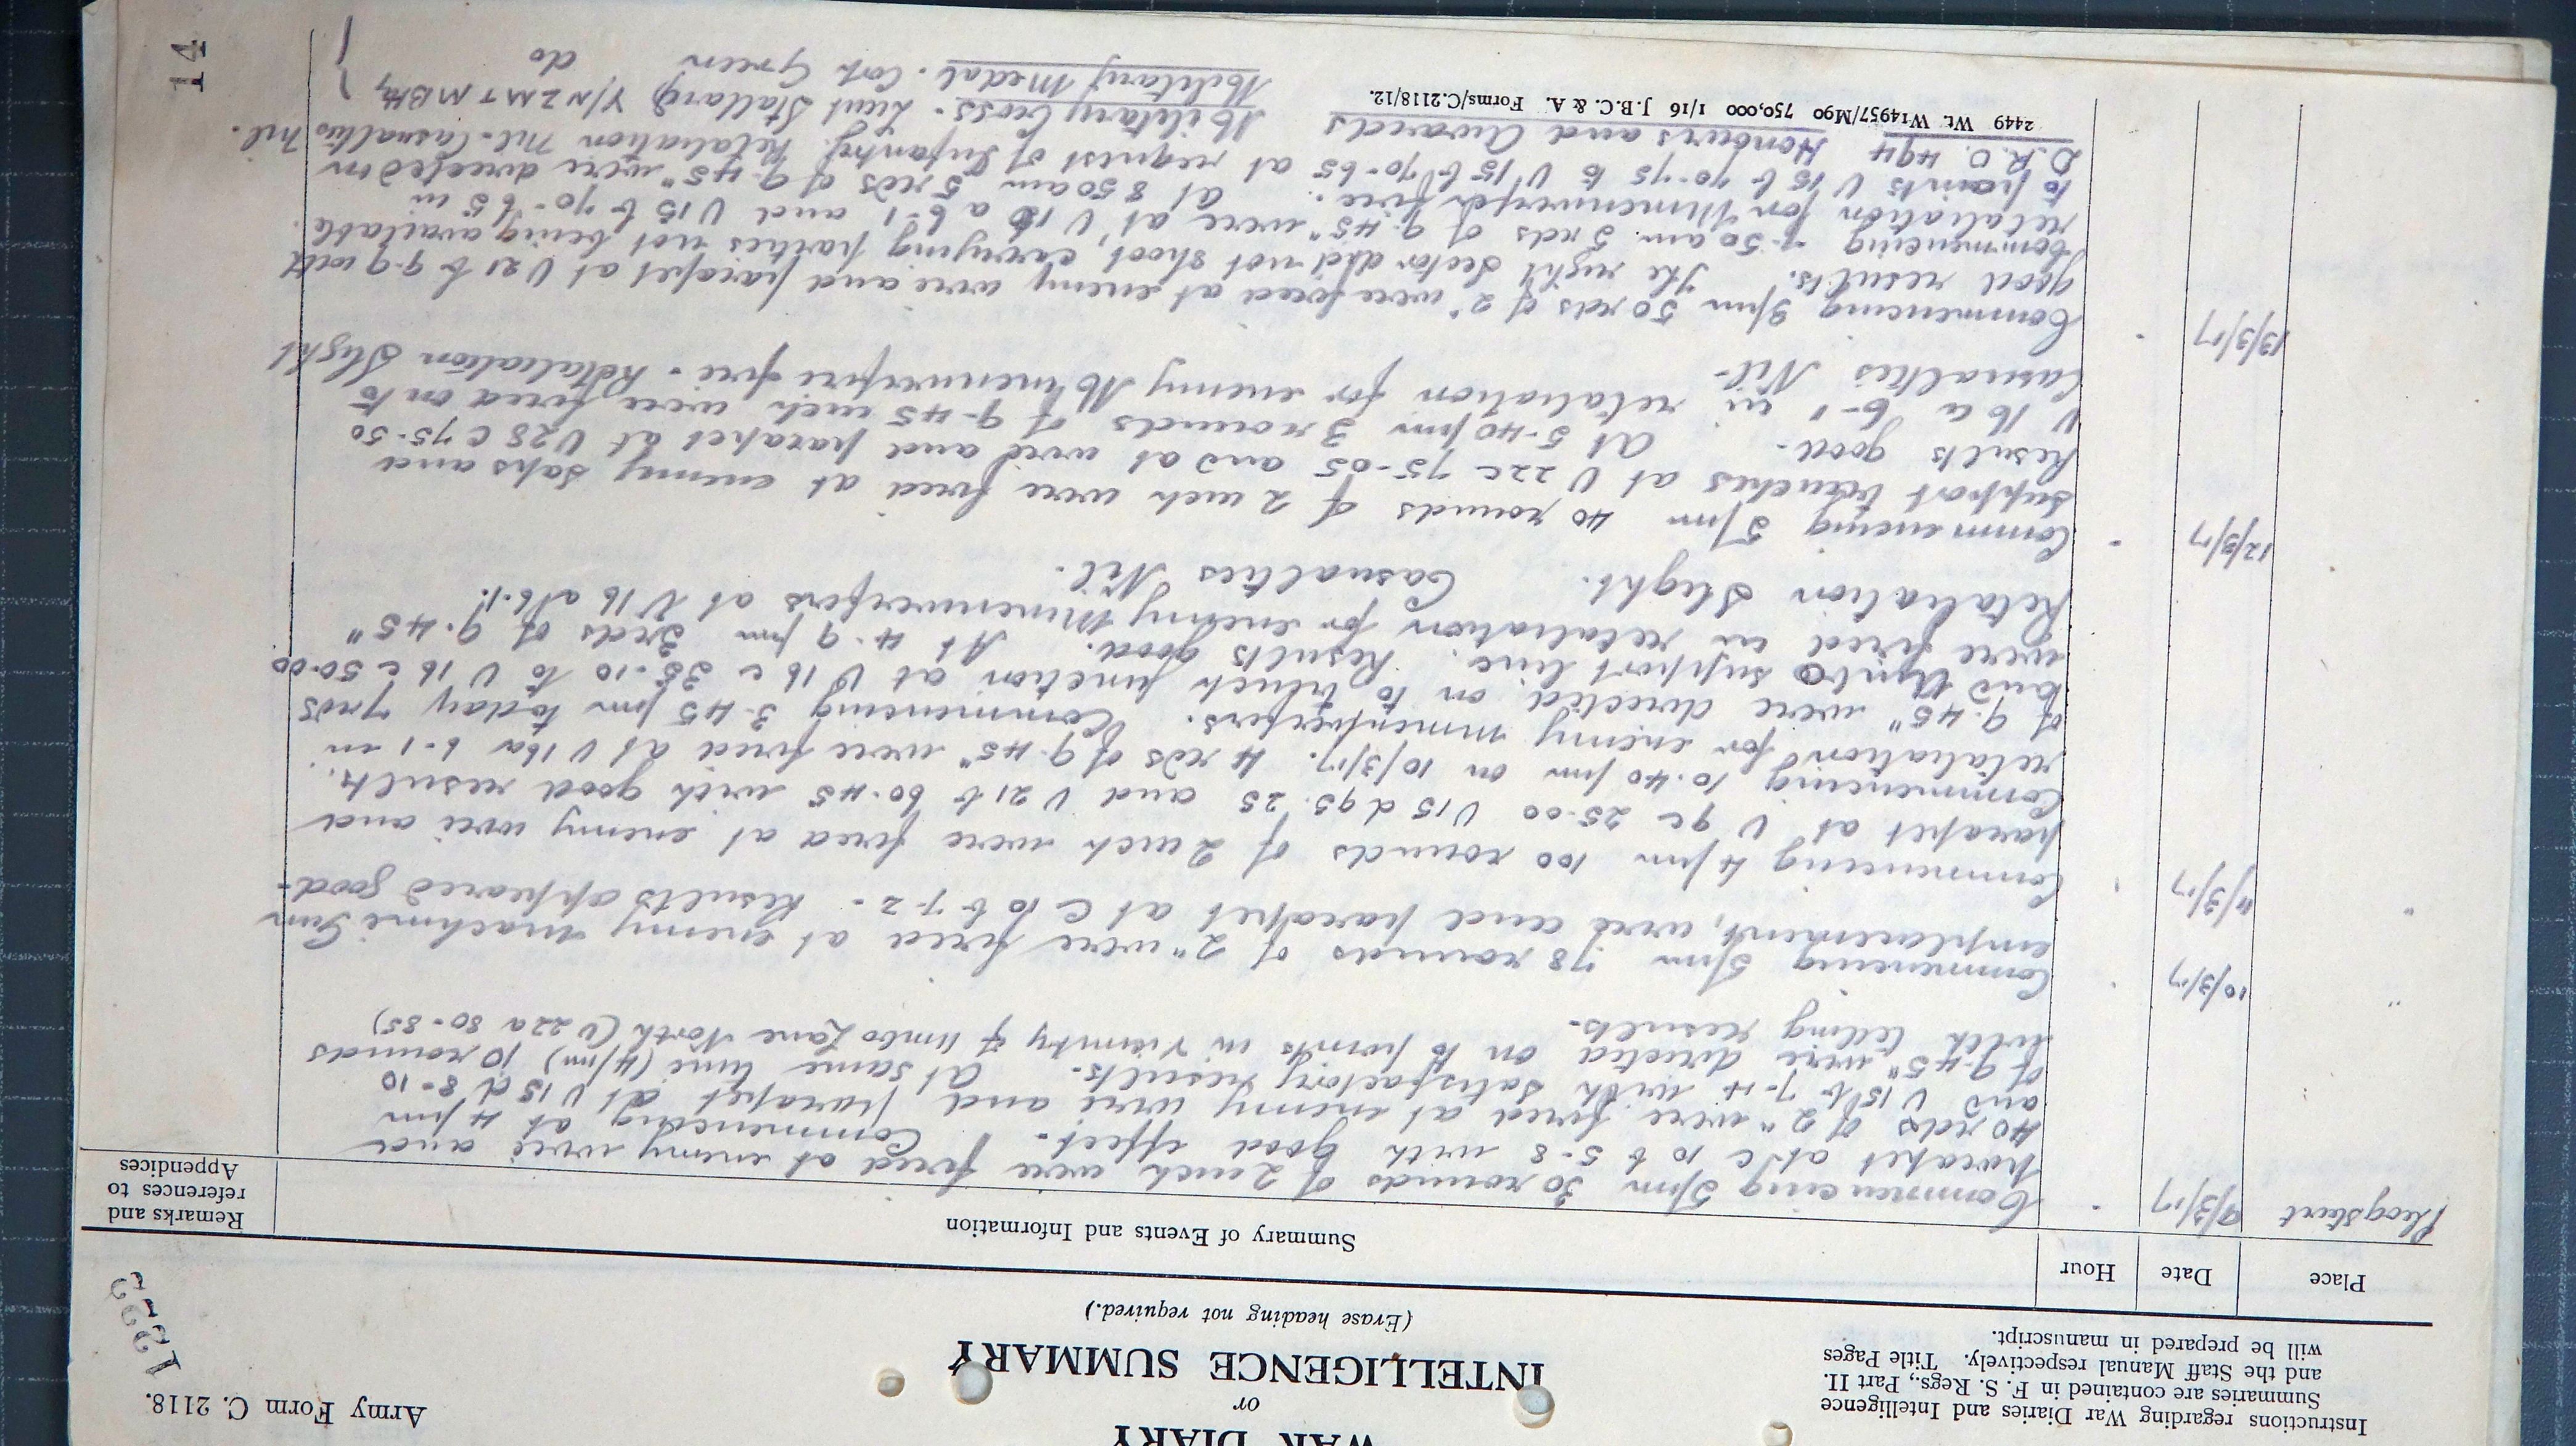 Army Form C. 2118.
WAR DIARY
or
INTELLIGENCE SUMMARY
(Erase heading not required.)
Instructions regarding War Diaries and Intelligence
Summaries are contained in F. S. Regs., Part II.
and the Staff Manual respectively. Title Pages
will be prepared in manuscript.
1223
Place
Date
Hour
Summary of Events and Information
Remarks and
references to
Appendices
Ploegsteert 9/3/17 Commencing 5/pm 30 rounds of 2 inch were fired at enemy wire and
parapet at C 10 b 5-8 with good effect. Commencing at 4/pm
40 rds of 2" were fired at enemy wire and parapet at U 15 d 8-10
and U 15 b 7-4 with satisfactory results. At same time (4/pm) 10 rounds
of 9.45" were directed on to points in vicinity of Limbo Lane North (U 22a 80-85)
with telling results.
" 10/3/17 Commencing 5/pm 78 rounds of 2" were fired at enemy machine Gun
emplacement, wire and parapet at C 10 b 7-2 - Results appeared good-
" 11/3/17 Commencing 4/pm 100 rounds of 2 inch were fired at enemy wire and
parapet at U 9c 25.00 U 15 d 95.25 and U 21 b 60.45 with good results.
Commencing 10.40/pm on 10/3/17. 4 rds of 9.45" were fired at U 16a 6-1 in
retaliation for enemy minenwerfers. Commencing 3.45/pm today 7 rds
of 9.45" were directed on to trench junction at U 16 c 35-10 to U 16 c 50.00
and support line. Results good. At 4.9/pm 3rds of 9.45"
were fired in retaliation for enemy Minenwerfers at U 16 a 6.1.
Retaliation Slight. Casualties Nil.
12/3/17 Commencing 5/pm 40 rounds of 2 inch were fired at enemy saps and
support trenches at U 22c 75-05 and at wire and parapet at U 28 c 75-50
Results good- At 5-40/pm 3 rounds of 9-45 inch were fired on to
U 16 a 6-1 in retaliation for enemy Minenwerfer fire - Retaliation Slight
Casualties Nil-
13/3/17 Commencing 3/pm 50 rds of 2" were fired at enemy wire and parapet at U 21 b 9-9 with
good results. The right Sector did not shoot, carrying parties not being available.
Commencing 7.50am 5 rds of 9.45" were at U 16 a 6-1, and U 15 b 70-65 in
retaliation for Minenwerfer fire. At 8 50am 5 rds of 9.45" were directed on
to points U 15 b 70-75 to U 15 b 70-65 at request of Infantry. Retaliation nil-Casualties nil.
D.R.O. 494 Honours and Awards
Military Cross- Lieut Stallard Y/NZ MT M Bty
Military Medal. Cpl Green do
2449 Wt. W14957/M90 750,000 1/16 J.B.C. & A. Forms/C.2118/12.
14